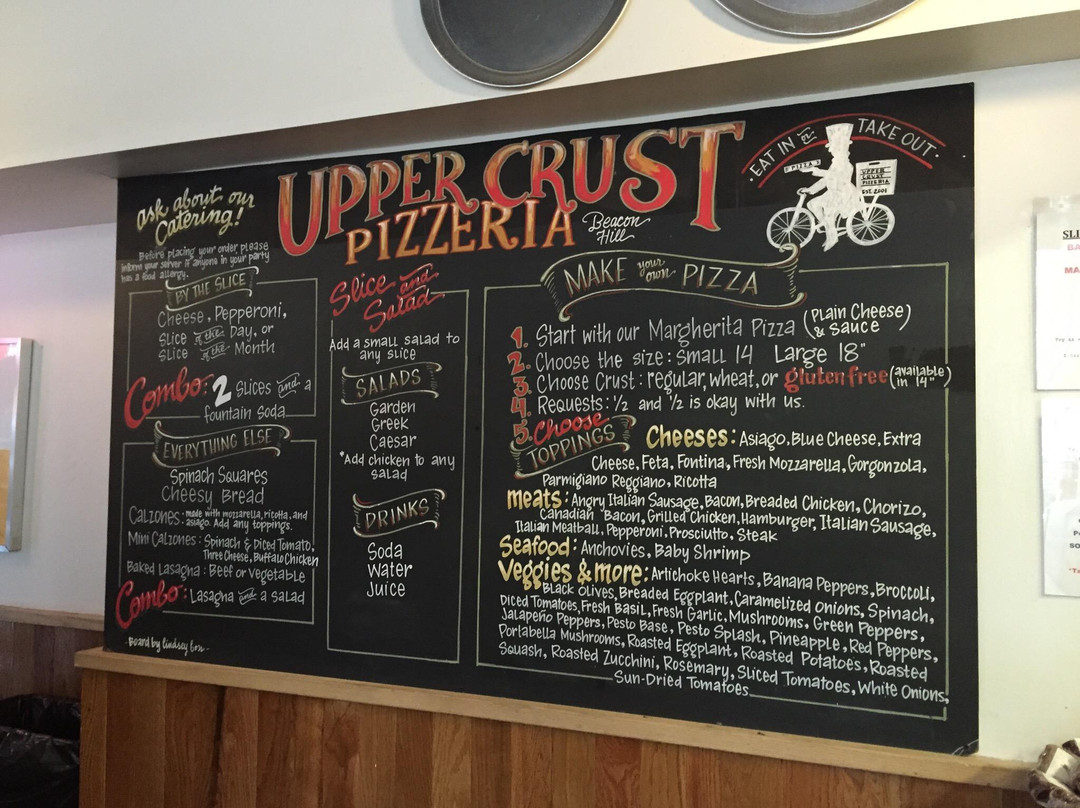 ask about our
Catering!
Before placing your order, please
inform your server if anyone in your party
has a food allergy.
UPPER CRUST
PIZZERIA
Beacon
Hill
EAT IN or TAKE OUT
PIZZA
UPPER
CRUST
PIZZERIA
EST. 2001
BY THE SLICE
Cheese, Pepperoni,
Slice of the Day, or
Slice of the Month
Combo: 2 Slices and a
fountain Soda
EVERYTHING ELSE
Spinach Squares
Cheesy Bread
Calzones - made with mozzarella, ricotta, and
asiago. Add any toppings.
Mini Calzones: Spinach & Diced Tomato,
Three Cheese, Buffalo Chicken
Baked Lasagna: Beef or Vegetable
Combo: Lasagna and a Salad
-Board by Lindsey
Slice and
Salad
Add a small salad to
any slice
SALADS
Garden
Greek
Caesar
*Add chicken to any
salad
DRINKS
Soda
Water
Juice
MAKE your own PIZZA
1. Start with our Margherita Pizza (Plain Cheese & Sauce)
2. Choose the size: Small 14 Large 18"
3. Choose Crust: regular, wheat, or gluten free (available in 14")
4. Requests: 1/2 and 1/2 is okay with us.
5. Choose
TOPPINGS
Cheeses: Asiago, Blue Cheese, Extra
Cheese, Feta, Fontina, Fresh Mozzarella, Gorgonzola,
Parmigiano Reggiano, Ricotta
meats: Angry Italian Sausage, Bacon, Breaded Chicken, Chorizo,
Canadian Bacon, Grilled Chicken, Hamburger, Italian Sausage,
Italian Meatball, Pepperoni, Prosciutto, Steak
Seafood: Anchovies, Baby Shrimp
Veggies & more: Artichoke Hearts, Banana Peppers, Broccoli,
Black Olives, Breaded Eggplant, Caramelized Onions, Spinach,
Diced Tomatoes, Fresh Basil, Fresh Garlic, Mushrooms, Green Peppers,
Jalapeño Peppers, Pesto Base, Pesto Splash, Pineapple, Red Peppers,
Portabella Mushrooms, Roasted Eggplant, Roasted Potatoes, Roasted
Squash, Roasted Zucchini, Rosemary, Sliced Tomatoes, White Onions,
Sun-Dried Tomatoes